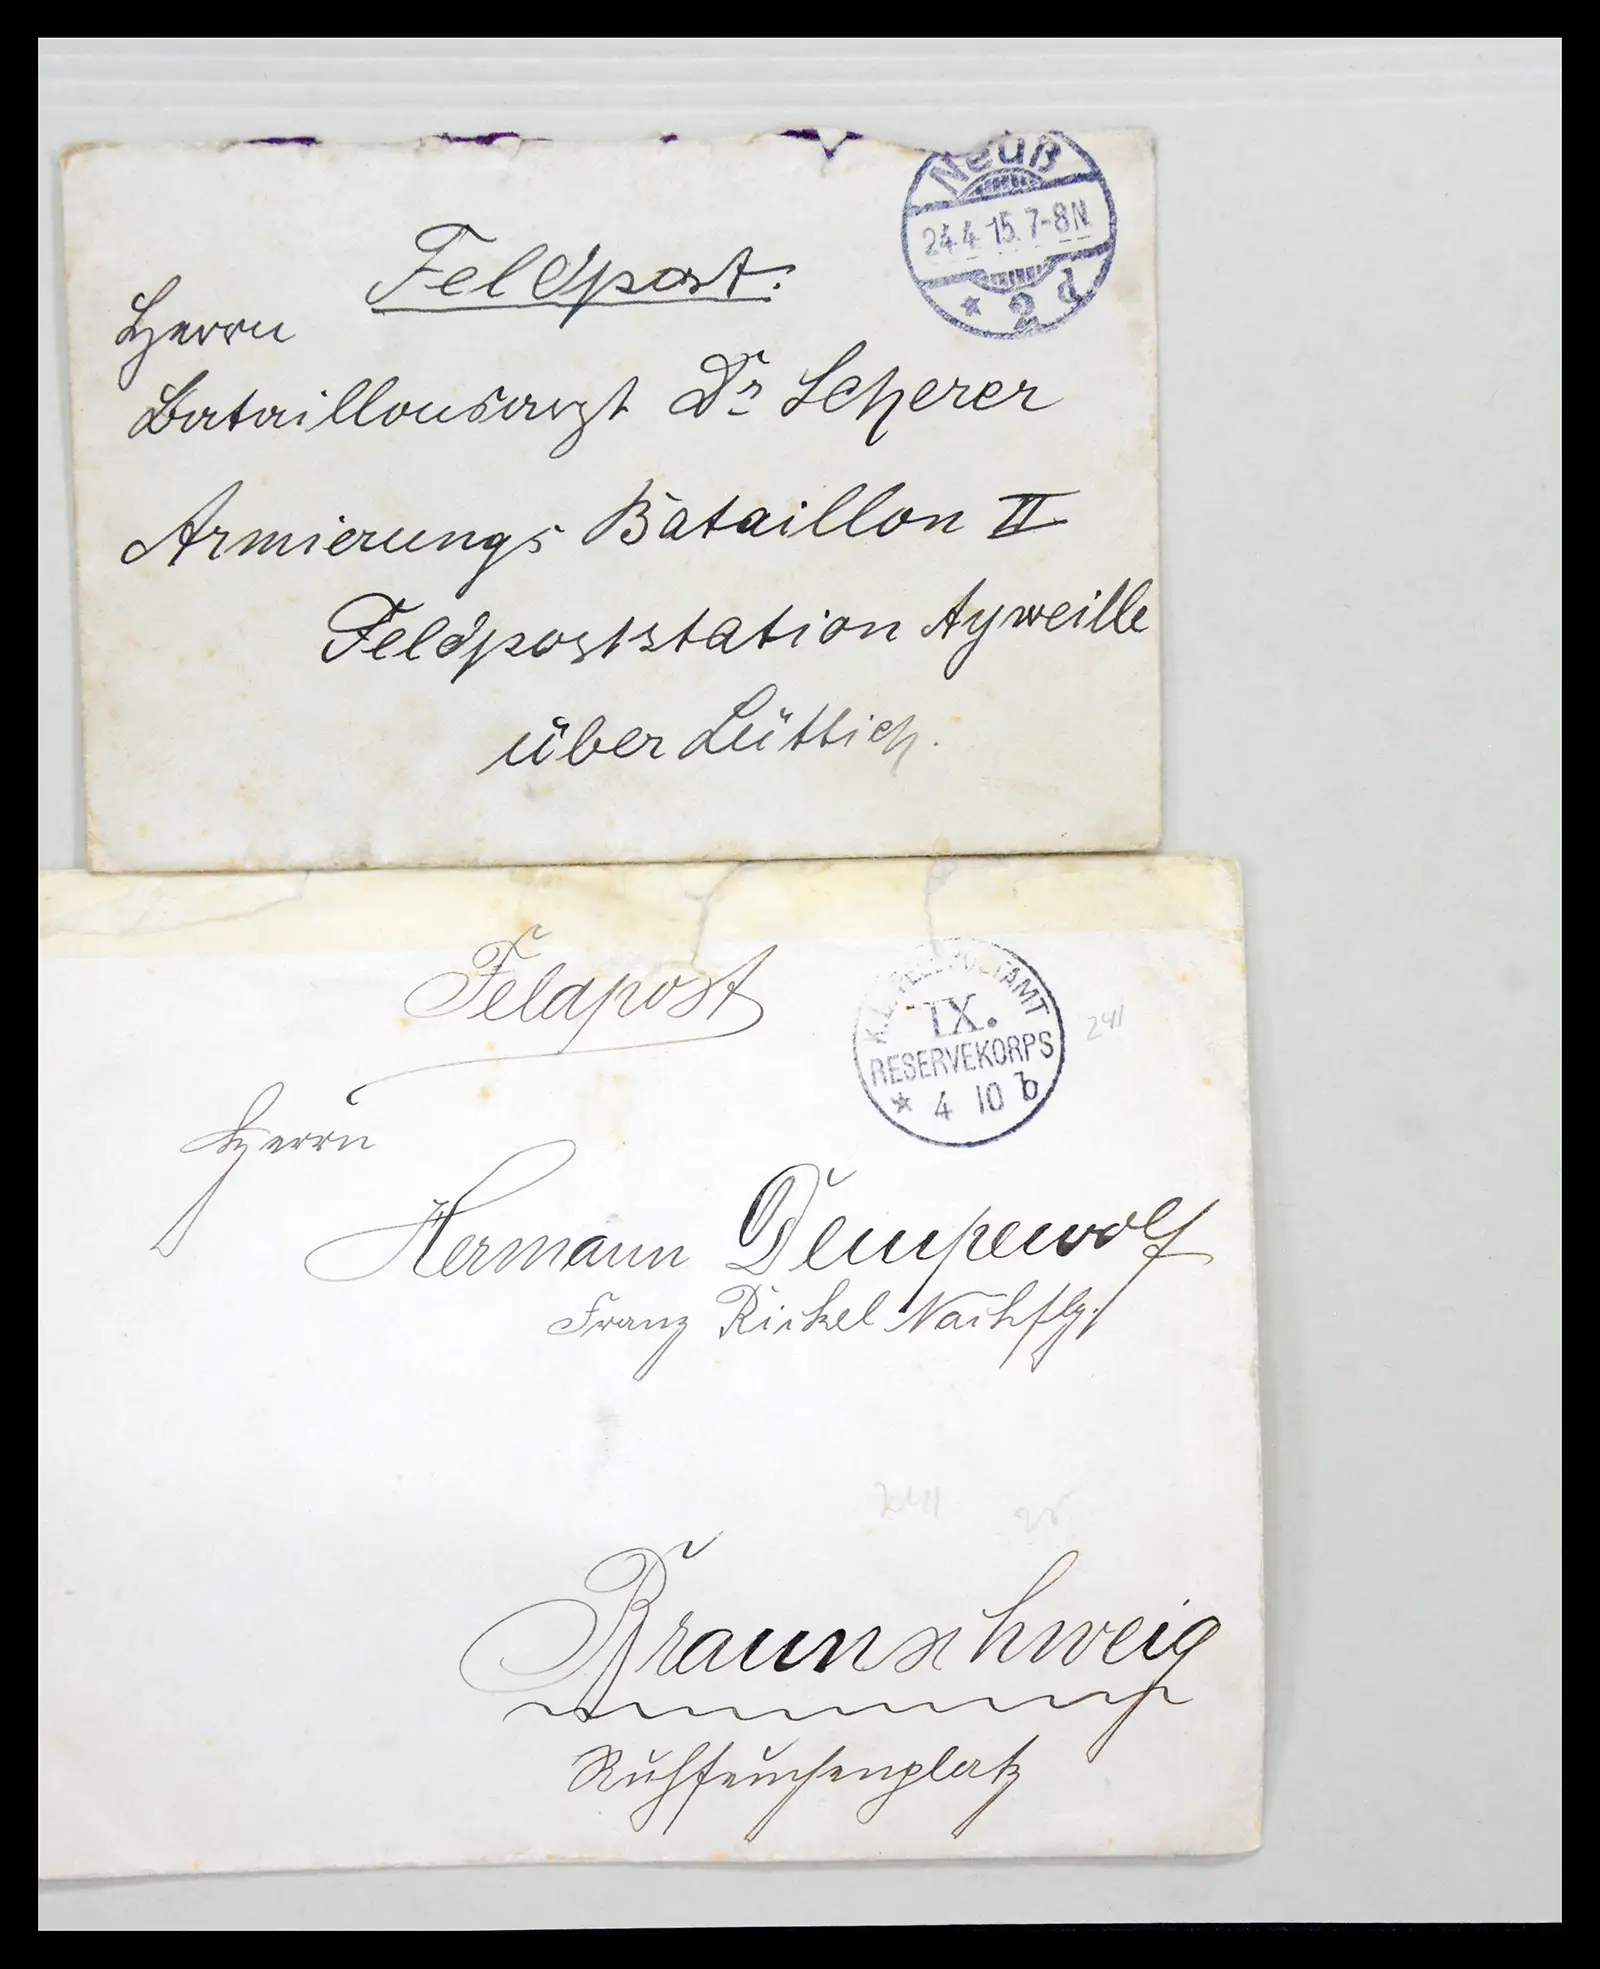 Neuß
24.4.15.7-8N
* 2 d
Feldpost.
Herrn
Bataillonsarzt Dr Scherer
Armierungs Bataillon II
Feldpoststation Ayweille
über Lüttich.
Feldpost
K.D. FELDPOSTAMT
IX.
RESERVEKORPS
* 4 10 b
241
Herrn
Hermann Dempewolf
Franz Rickel Nachflg.
25
Braunschweig
Ruhfeutchenplatz